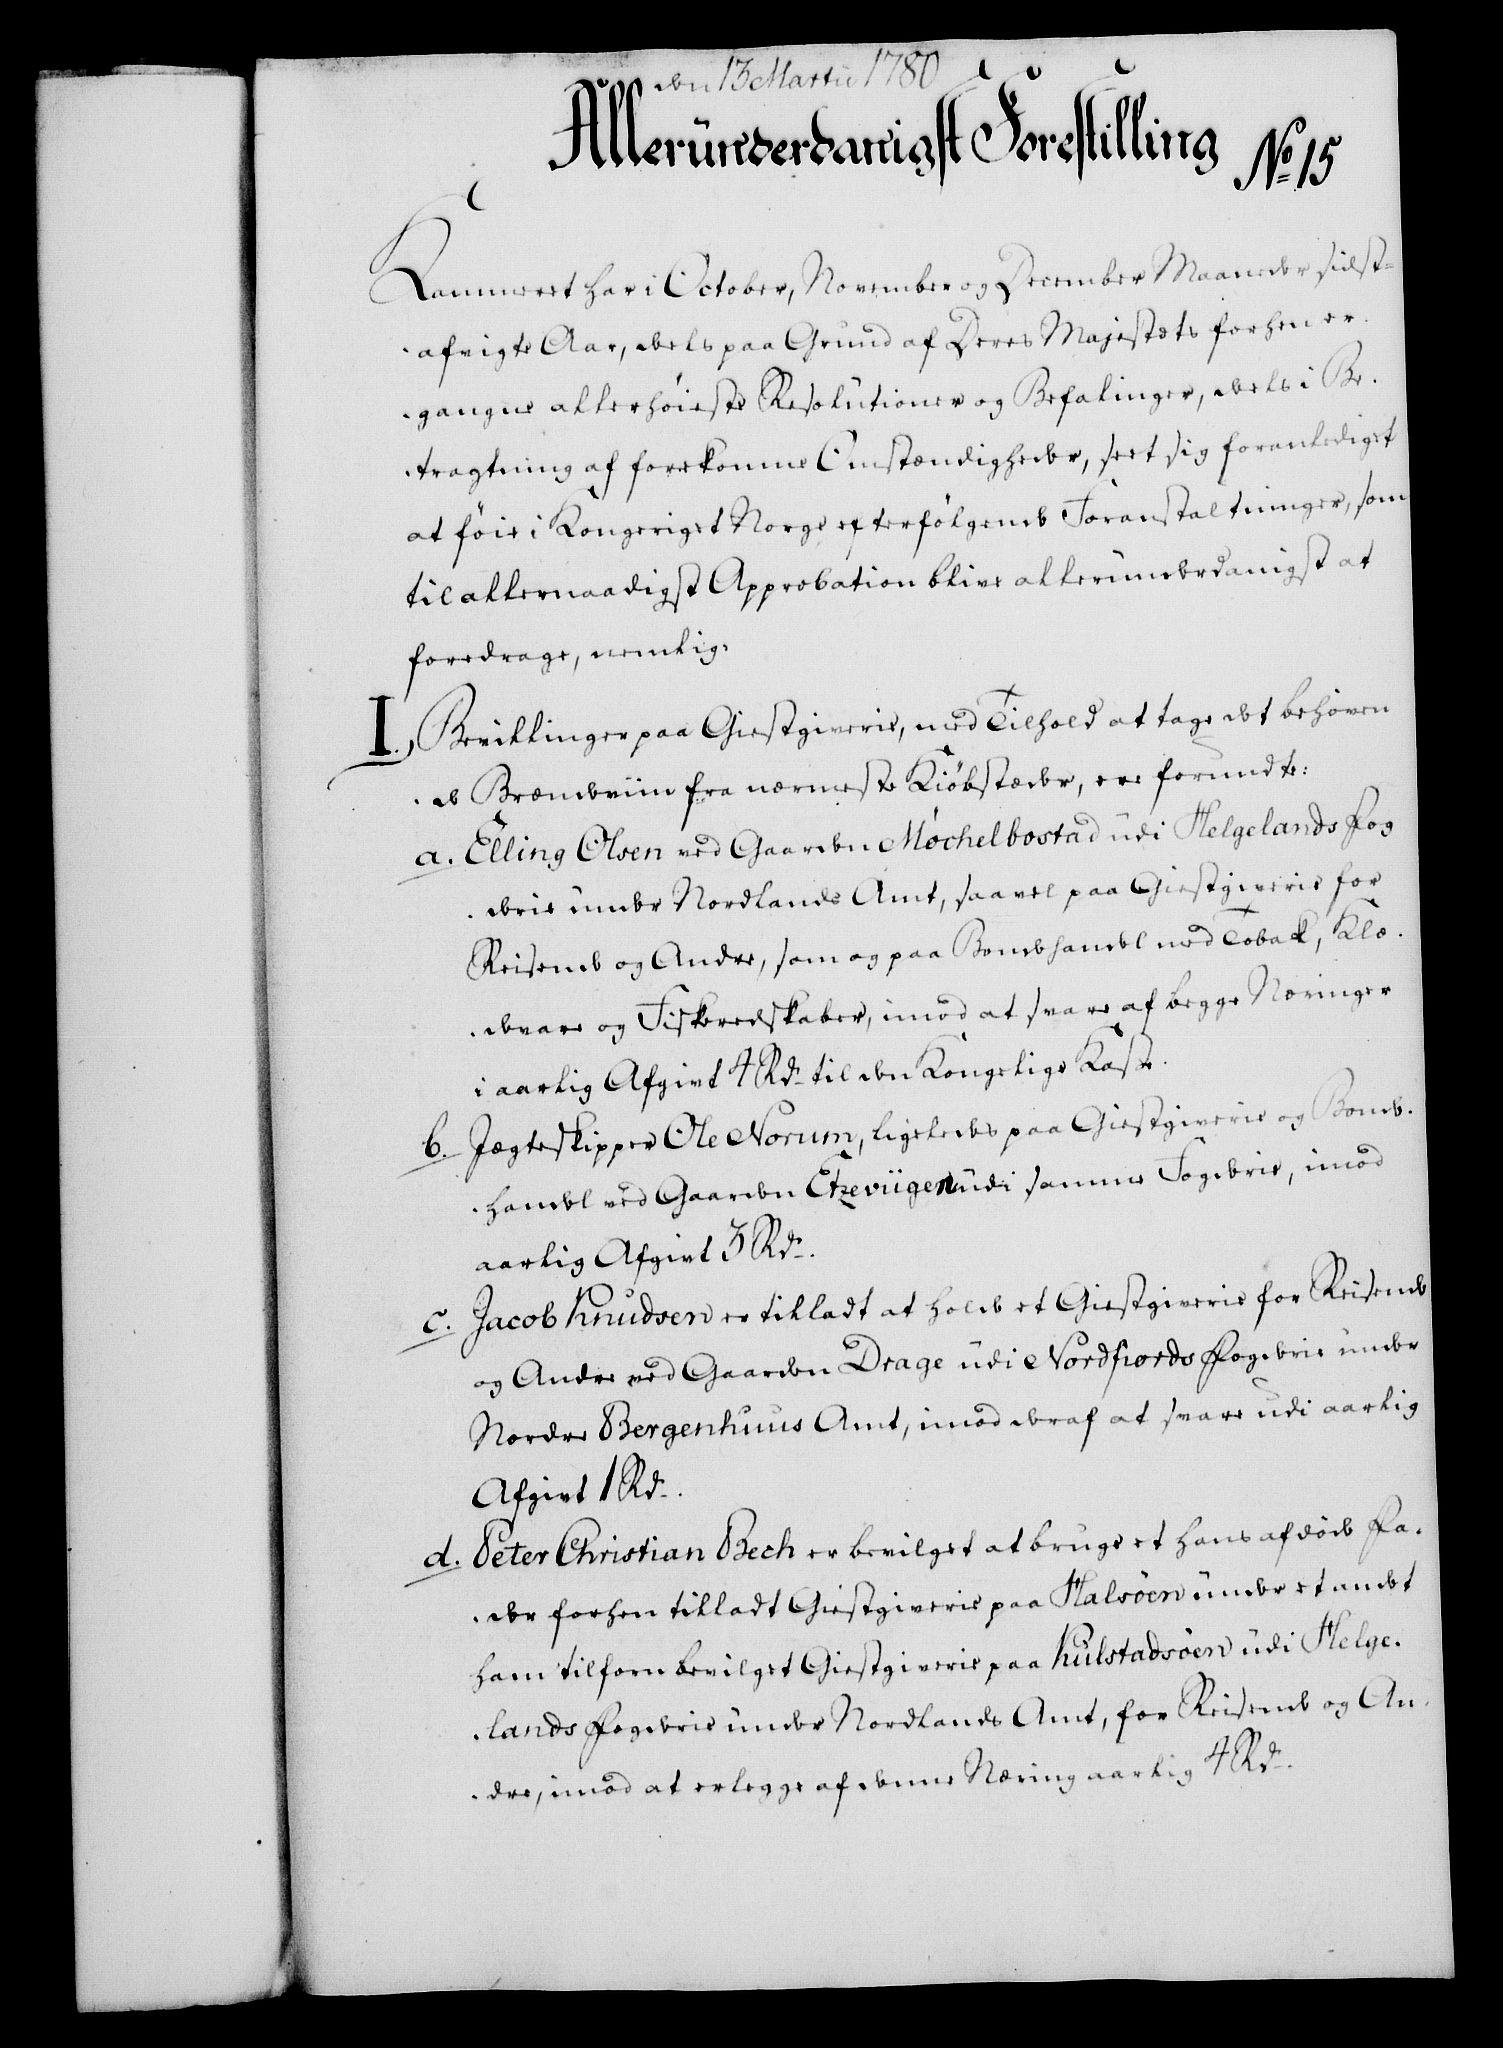 den 13 Martii 1780
Alleründerdanigst Forestilling No 15
Kammeret har i October, November og December Maaneder sidst-
afvigte Aar, deels paa Grund af Deres Majestæts forhen er-
gangne allerhøieste Resolutioner og Befalinger, deels i Be-
tragtning af forekomne Omstændigheder, seet sig foranlediget
at føie i Kongeriget Norge efterfølgende Foranstaltninger, som
til allernaadigst Approbation blive alleründerdanigst at
foredrage, nemlig:
I. Bevillinger paa Giestgiverie, med Tilhold at tage det behøven-
de Brændeviin fra nærmeste Kiøbstæder, ere forundte:
a. Elling Olsen ved Gaarden Møchelbostad üdi Helgelands Fog-
derie ünder Nordlands Amt, saavel paa Giestgiverie for
Reisende og Andre, som og paa Bondehandel med Tobak, Klæ-
devare og Fiskeredskaber, imod at svare af begge Næringer
i aarlig Afgivt 4 Rd. til den Kongelige Kasse.
b. Jægteskipper Ole Norum, ligeledes paa Giestgiverie og Bonde-
handel ved Gaarden Etzeviigen üdi samme Fogderie, imod
aarlig Afgivt 3 Rd.
c. Jacob Knudsen er tilladt at holde et Giestgiverie for Reisende
og Andre ved Gaarden Drage üdi Nordfiords Fogderie ünder
Nordre Bergenhuus Amt, imod deraf at svare udi aarlig
Afgivt 1 Rd.
d. Peter Christian Bech er bevilget at bruge et hans afdøde Fa-
der forhen tilladt Giestgiverie paa Halsöen ünder et andet
ham tilforn bevilget Giestgiverie paa Kulstadsöen üdi Helge-
lands Fogderie ünder Nordlands Amt, for Reisende og An-
dre, imod at erlegge af denne Næring aarlig 4 Rd.